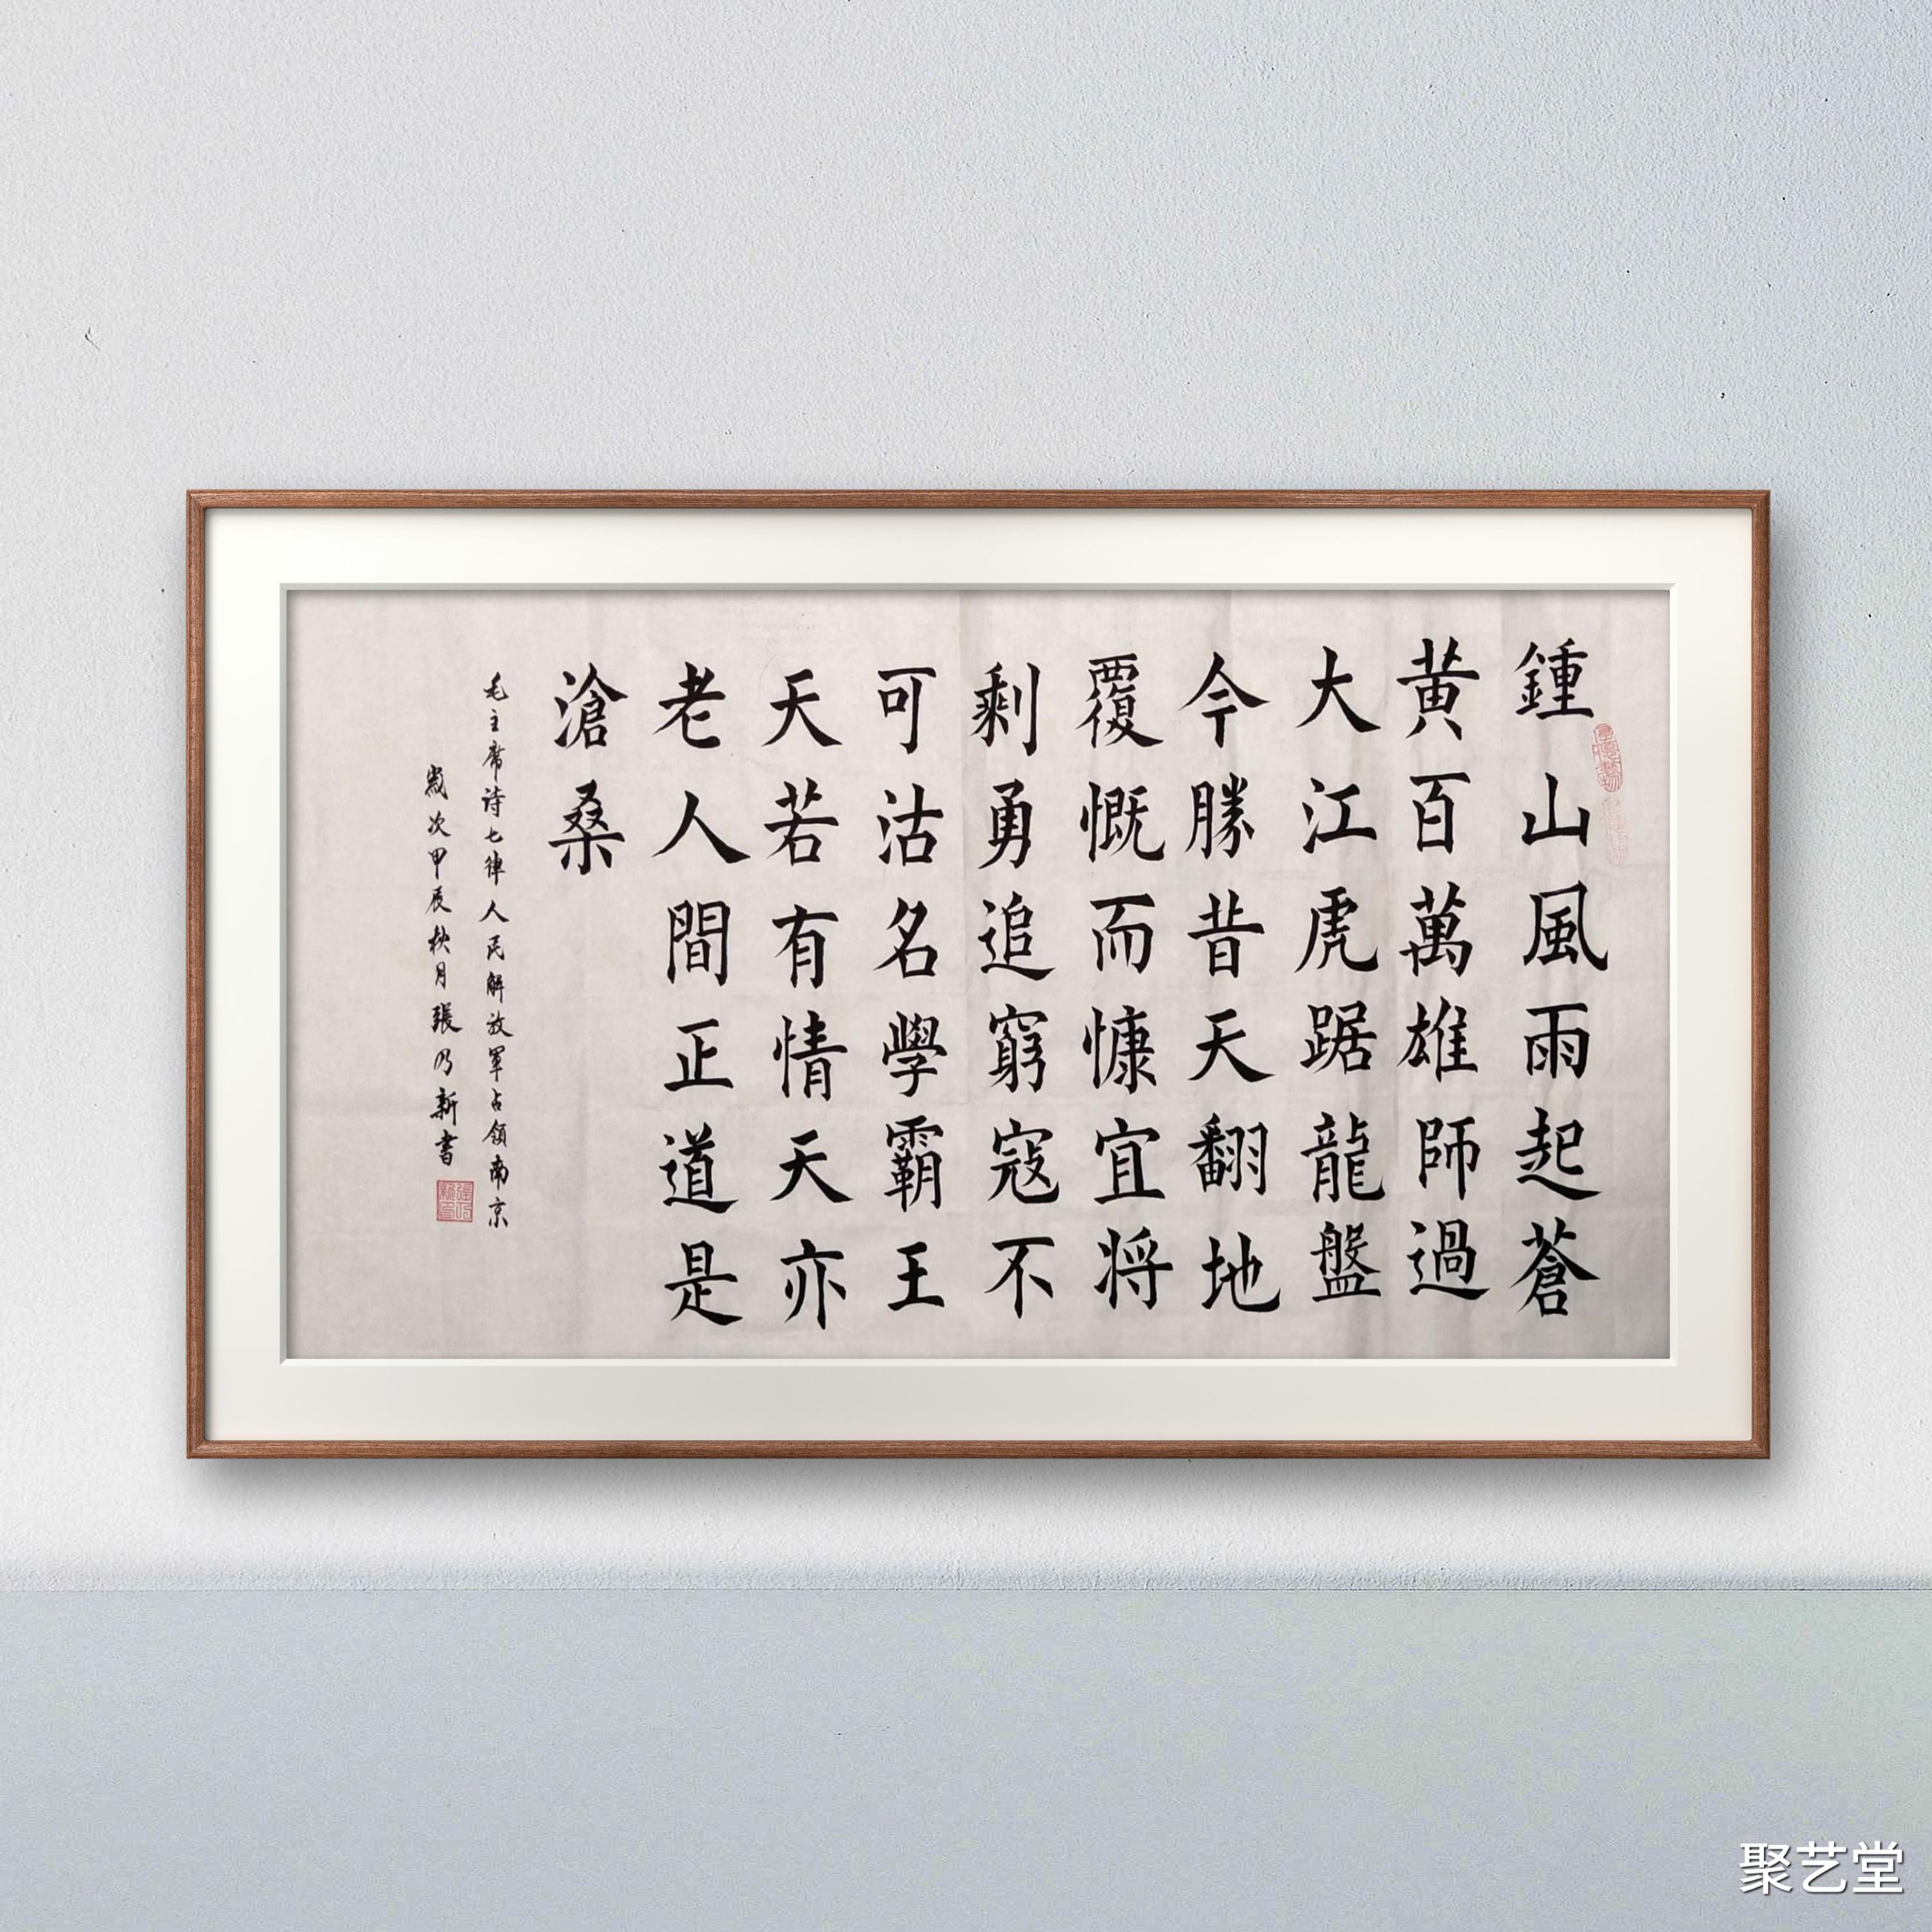 鍾山風雨起蒼
黄百萬雄師過
大江虎踞龍盤
今勝昔天翻地
覆慨而慷宜将
剩勇追窮寇不
可沽名學霸王
天若有情天亦
老人間正道是
滄桑
毛主席诗七律人民解放軍占領南京
歲次甲辰秋月張乃新書
聚艺堂